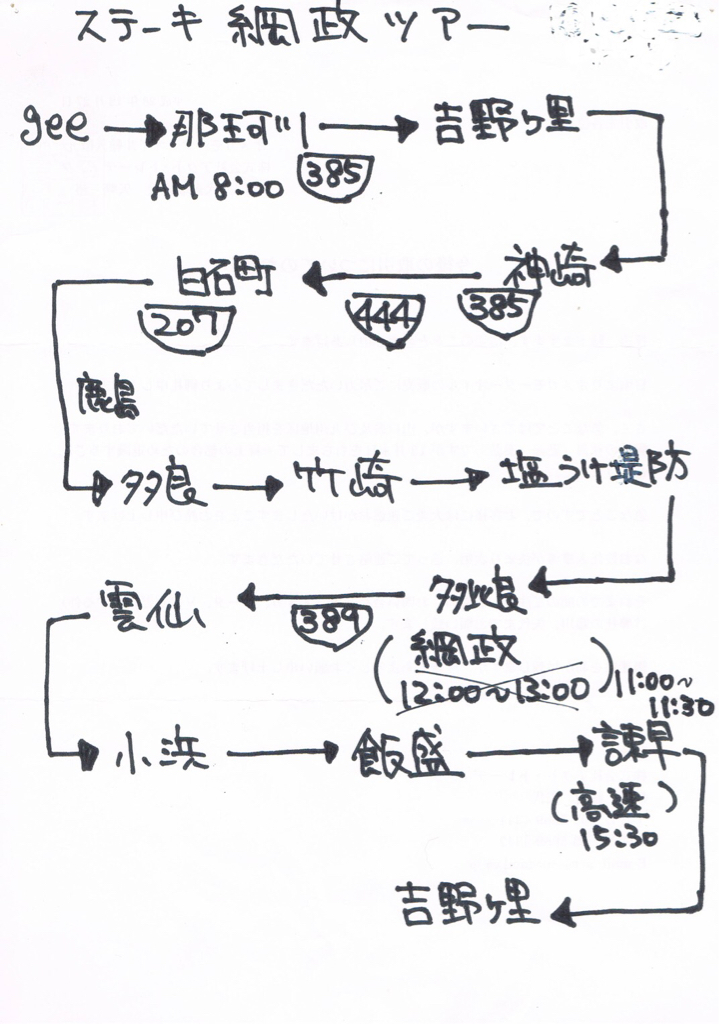 ステーキ 綱政ツアー
gee → 那珂川 → 吉野ヶ里
AM 8:00 385
白石町 ← 神崎
207 444 385
鹿島
多良 → 竹崎 → 塩うけ堤防
雲仙 ← 多比良
389
(綱政
12:00~13:00) 11:00~
11:30
小浜 → 飯盛 → 諫早
(高速)
15:30
吉野ヶ里